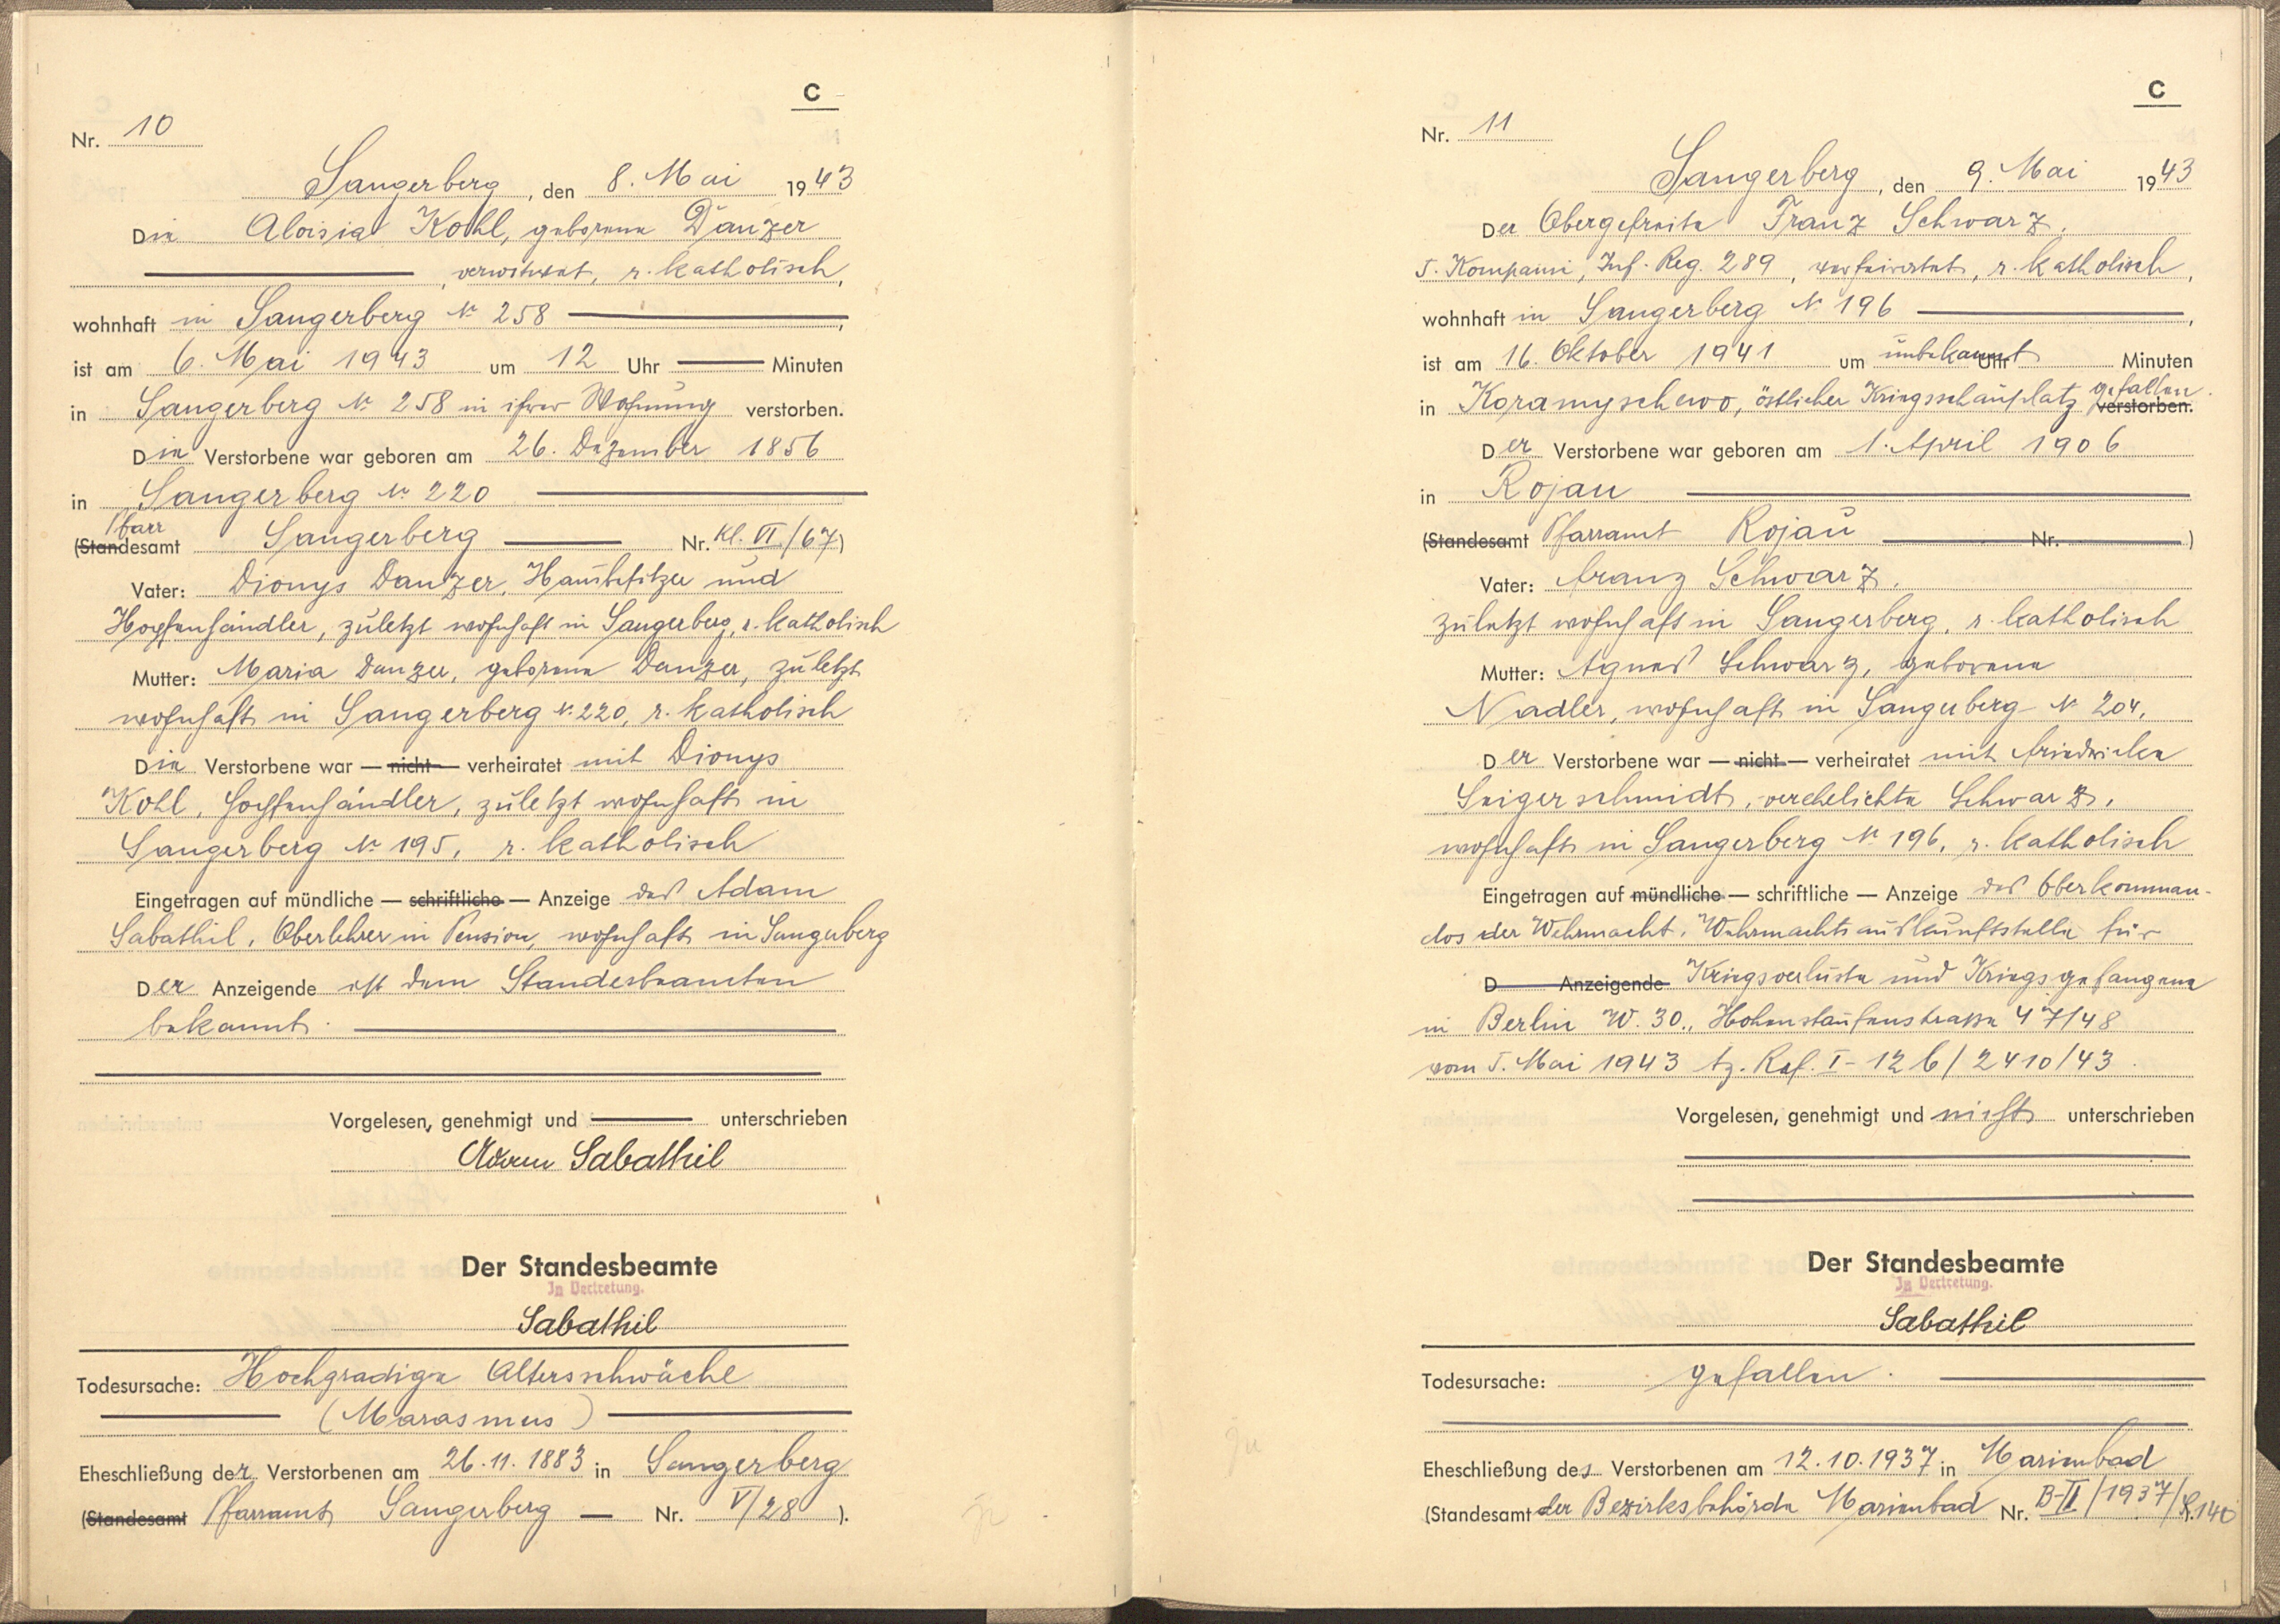 C
Nr. 10
Sangerberg, den 8. Mai 1943
Die Aloisia Kohl, geborene Danzer
, verwitwet, r. katholisch,
wohnhaft in Sangerberg Nr. 258 ,
ist am 6. Mai 1943 um 12 Uhr Minuten
in Sangerberg Nr. 258 in ihrer Wohnung verstorben.
Die Verstorbene war geboren am 26. Dezember 1856
in Sangerberg Nr. 220
Pfarr
(Standesamt Sangerberg Nr. Kl. VI./67)
Vater: Dionys Danzer, Hausbesitzer und
Hopfenhändler, zuletzt wohnhaft in Sangerberg, r. katholisch
Mutter: Maria Danzer, geborene Danzer, zuletzt
wohnhaft in Sangerberg Nr. 220, r. katholisch
Die Verstorbene war — nicht — verheiratet mit Dionys
Kohl, Hopfenhändler, zuletzt wohnhaft in
Sangerberg Nr. 195, r. katholisch
Eingetragen auf mündliche — schriftliche — Anzeige des Adam
Sabathil, Oberlehrer in Pension, wohnhaft in Sangerberg
Der Anzeigende ist dem Standesbeamten
bekannt.
Vorgelesen, genehmigt und unterschrieben
Adam Sabathil
Der Standesbeamte
In Vertretung.
Sabathil
Todesursache: Hochgradige Altersschwäche
(Marasmus)
Eheschließung der Verstorbenen am 26.11.1883 in Sangerberg
(Standesamt Pfarramt Sangerberg — Nr. V/28 ).
C
Nr. 11
Sangerberg, den 9. Mai 1943
Der Obergefreite Franz Schwarz,
5. Kompanie, Inf. Reg. 289, verheiratet, r. katholisch,
wohnhaft in Sangerberg Nr. 196 ,
ist am 16. Oktober 1941 um unbekannt Uhr Minuten
in Koramyschewo, östlicher Kriegsschauplatz gefallen verstorben.
Der Verstorbene war geboren am 1. April 1906
in Rojau
(Standesamt Pfarramt Rojau Nr. )
Vater: Franz Schwarz,
zuletzt wohnhaft in Sangerberg, r. katholisch
Mutter: Agnes Schwarz, geborene
Nadler, wohnhaft in Sangerberg Nr. 204,
Der Verstorbene war — nicht — verheiratet mit Friedericke
Seigerschmidt, verehelichte Schwarz,
wohnhaft in Sangerberg Nr. 196, r. katholisch
Eingetragen auf mündliche — schriftliche — Anzeige des Oberkomman-
dos der Wehrmacht, Wehrmachtsauskunftstelle für
D Anzeigende Kriegsverluste und Kriegsgefangene
in Berlin W. 30., Hohenstaufenstrasse 47/48
vom 5. Mai 1943 Az. Ref. I-12 b/2410/43.
Vorgelesen, genehmigt und nicht unterschrieben
Der Standesbeamte
In Vertretung.
Sabathil
Todesursache: gefallen.
Eheschließung des Verstorbenen am 12.10.1937 in Marienbad
(Standesamt der Bezirksbehörde Marienbad Nr. B-II/1937/S.140